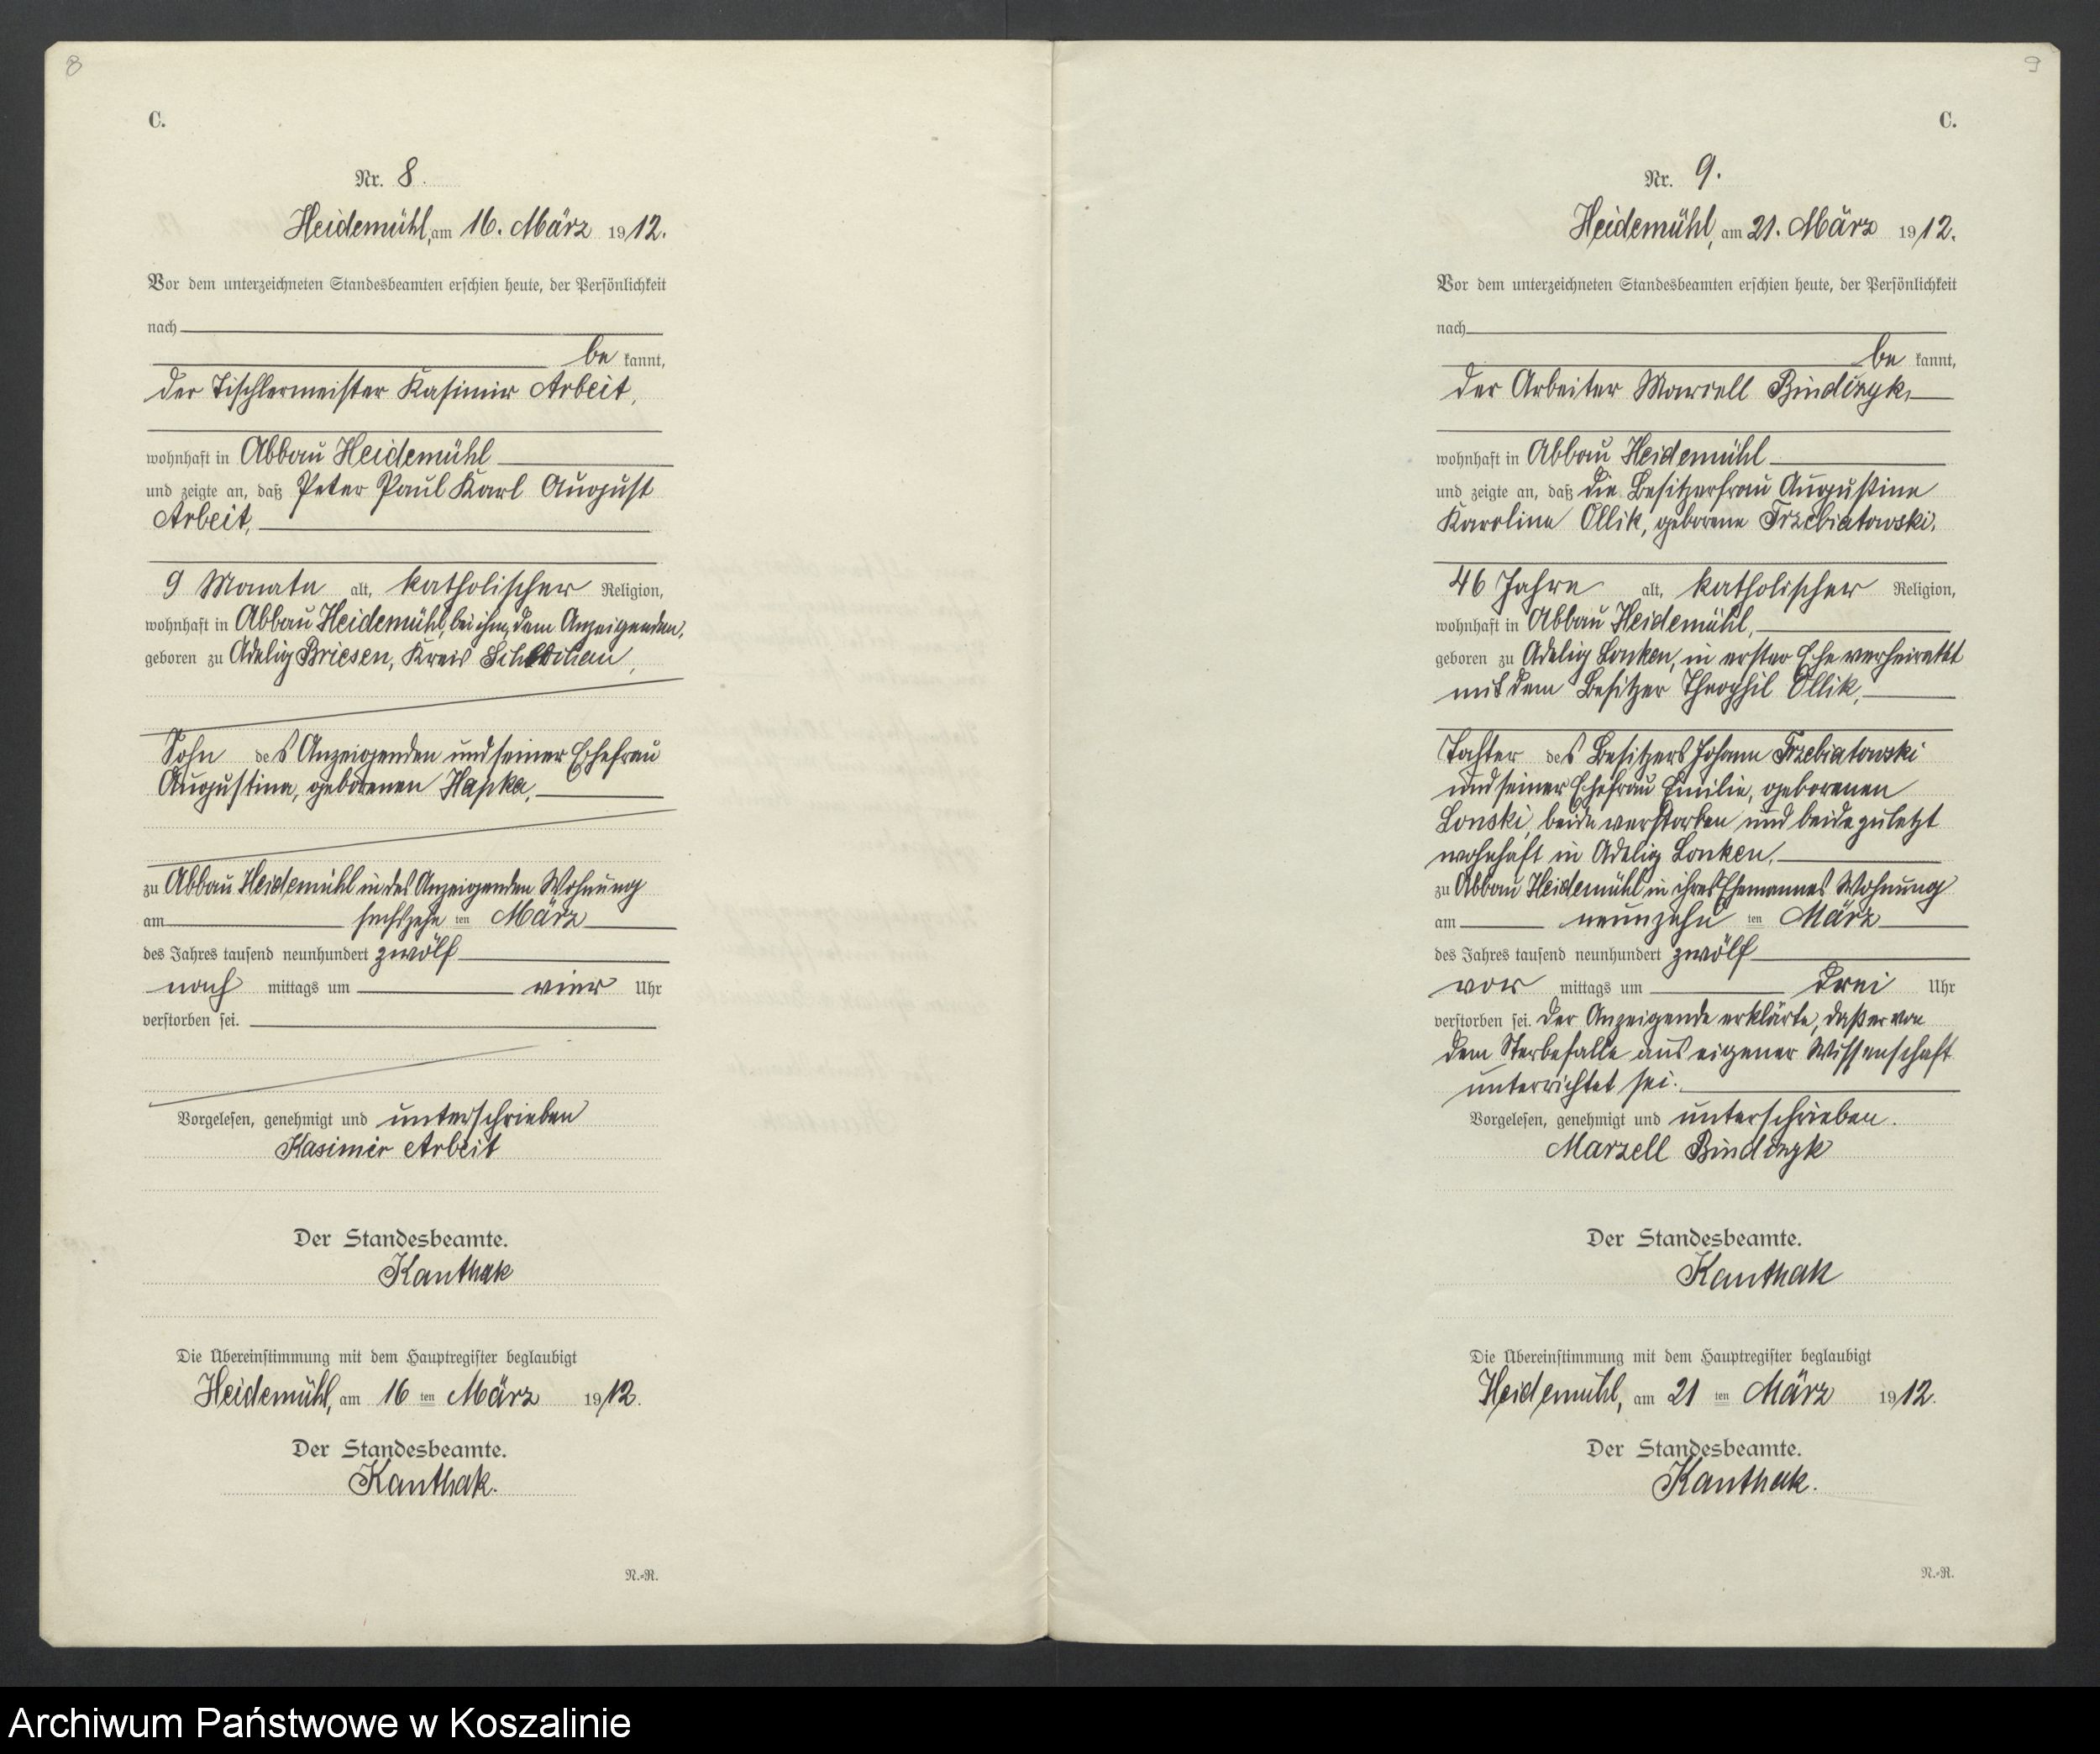 8
C.
Nr. 8.
Heidemühl, am 16. März 1912.
Vor dem unterzeichneten Standesbeamten erschien heute, der Persönlichkeit
nach
be kannt,
der Tischlermeister Kasimir Arbeit,
wohnhaft in Abbau Heidemühl
und zeigte an, daß Peter Paul Karl August
Arbeit,
9 Monate alt, katholischer Religion,
wohnhaft in Abbau Heidemühl, bei ihm, dem Anzeigenden,
geboren zu Adelig Briesen, Kreis Schlochau,
Sohn des Anzeigenden und seiner Ehefrau
Augustine, geborenen Hapka,
zu Abbau Heidemühl in des Anzeigenden Wohnung
am sechszehn ten März
des Jahres tausend neunhundert zwölf
nach mittags um vier Uhr
verstorben sei.
Vorgelesen, genehmigt und unterschrieben
Kasimir Arbeit
Der Standesbeamte.
Kanthak
Die Übereinstimmung mit dem Hauptregister beglaubigt
Heidemühl, am 16 ten März 1912.
Der Standesbeamte.
Kanthak.
N.-R.
9
C.
Nr. 9.
Heidemühl, am 21. März 1912.
Vor dem unterzeichneten Standesbeamten erschien heute, der Persönlichkeit
nach
be kannt,
der Arbeiter Marcell Bindczyk,
wohnhaft in Abbau Heidemühl
und zeigte an, daß die Besitzerfrau Augustine
Karoline Ollik, geborene Trzebiatowski,
46 Jahre alt, katholischer Religion,
wohnhaft in Abbau Heidemühl,
geboren zu Adelig Lonken, in erster Ehe verheiratet
mit dem Besitzer Theophil Ollik,
Tochter des Besitzers Johann Trzebiatowski
und seiner Ehefrau Emilie, geborenen
Lonski, beide verstorben und beide zuletzt
wohnhaft in Adelig Lonken,
zu Abbau Heidemühl in ihres Ehemannes Wohnung
am neunzehn ten März
des Jahres tausend neunhundert zwölf
vor mittags um drei Uhr
verstorben sei. Der Anzeigende erklärte, daß er von
dem Sterbefalle aus eigener Wissenschaft
unterrichtet sei.
Vorgelesen, genehmigt und unterschrieben.
Marzell Bindczyk
Der Standesbeamte.
Kanthak
Die Übereinstimmung mit dem Hauptregister beglaubigt
Heidemühl, am 21 ten März 1912.
Der Standesbeamte.
Kanthak.
N.-R.
Archiwum Państwowe w Koszalinie